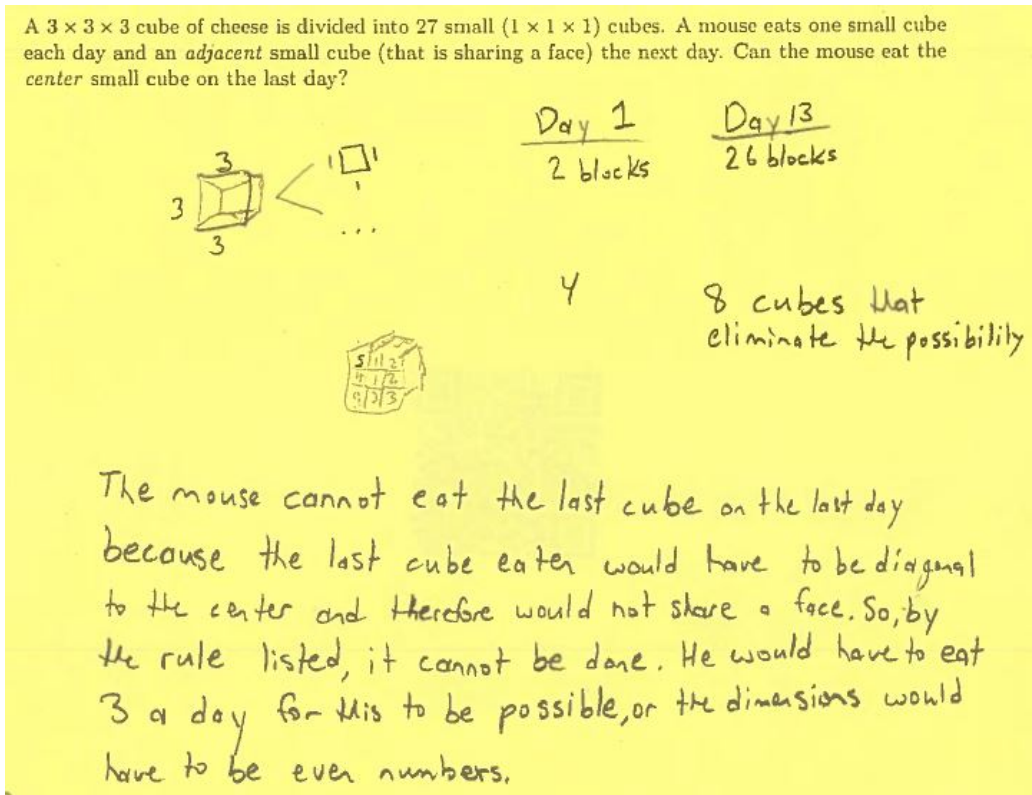 A 3 × 3 × 3 cube of cheese is divided into 27 small (1 × 1 × 1) cubes. A mouse eats one small cube
each day and an adjacent small cube (that is sharing a face) the next day. Can the mouse eat the
center small cube on the last day?
Day 1
Day 13
2 blocks
26 blocks
3
1 1
3
1
3
...
4
8 cubes that
eliminate the possibility
The mouse cannot eat the last cube on the last day
because the last cube eaten would have to be diagonal
to the center and therefore would not share a face. So, by
the rule listed, it cannot be done. He would have to eat
3 a day for this to be possible, or the dimensions would
have to be even numbers.